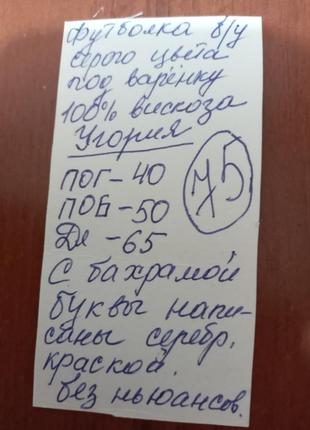 футболка б/у
серого цвета
под варёнку
100% вискоза
Угория
ПОГ-40
ПОБ-50
Дл -65
75
С бахрамой
буквы напи-
саны серебр.
краской.
без ньюансов.